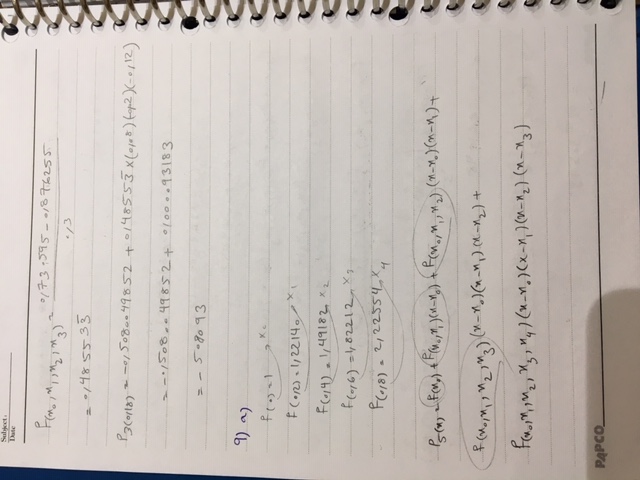 Subject:
Date
f(x₀, x₁, x₂, x₃) = 0,730595 − 0,876255 / 0,3
= 0,485533̄
P₃(0,18) = −0,5080049852 + 0,48553̄ × (0,08)(−0,02)(−0,12)
= −0,5080049852 + 0,000093183
= −508093
9) a)
f(0) = 1 x₀
f(0,2) = 1,22140 x₁
f(0,4) = 1,49182 x₂
f(0,6) = 1,82212 x₃
f(0,8) = 2,22554 x₄
P₅(x) = f(x₀) + f(x₀,x₁)(x−x₀) + f(x₀,x₁,x₂)(x−x₀)(x−x₁) +
f(x₀,x₁,x₂,x₃)(x−x₀)(x−x₁)(x−x₂) +
f(x₀,x₁,x₂,x₃,x₄)(x−x₀)(x−x₁)(x−x₂)(x−x₃)
PAPCO